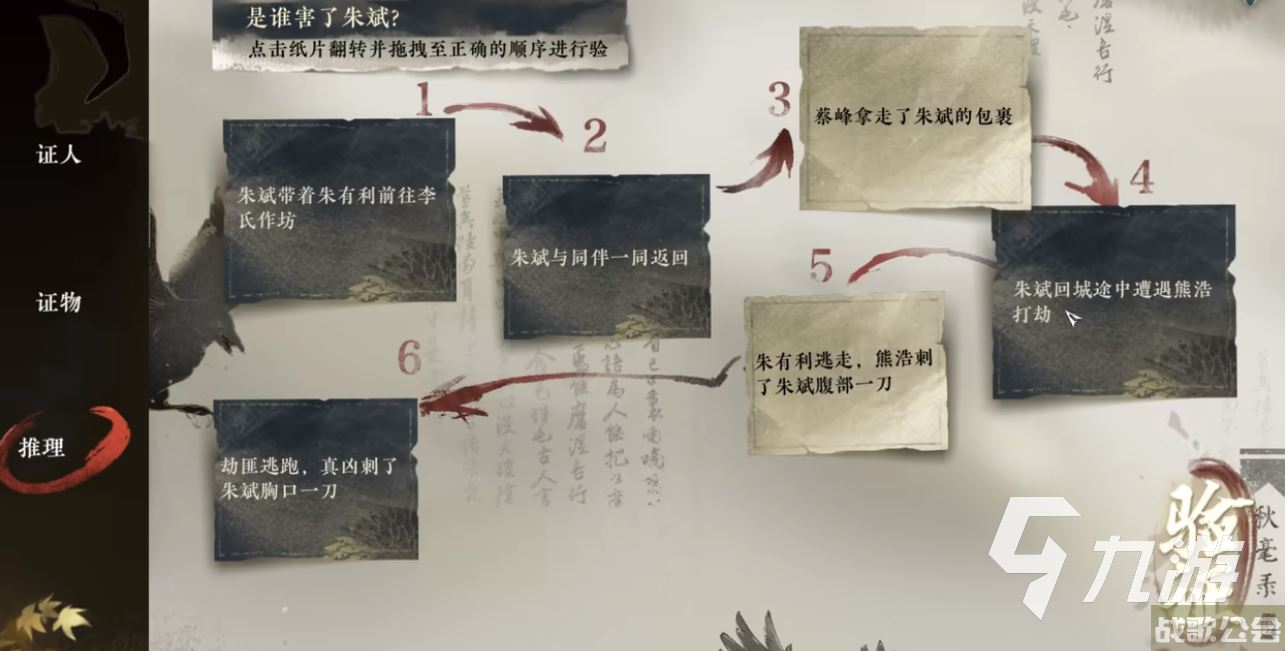 是谁害了朱斌?
点击纸片翻转并拖拽至正确的顺序进行验
证人
证物
推理
1
朱斌带着朱有利前往李
氏作坊
2
朱斌与同伴一同返回
3
蔡峰拿走了朱斌的包裹
4
朱斌回城途中遭遇熊浩
打劫
5
朱有利逃走，熊浩刺
了朱斌腹部一刀
6
劫匪逃跑，真凶刺了
朱斌胸口一刀
秋毫
九游
战歌公会